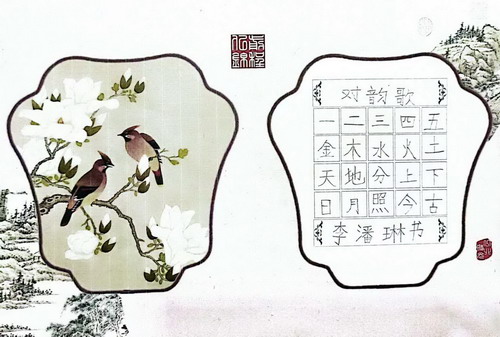 前程似锦
对韵歌
一二三四五
金木水火土
天地分上下
日月照今古
李潘琳书